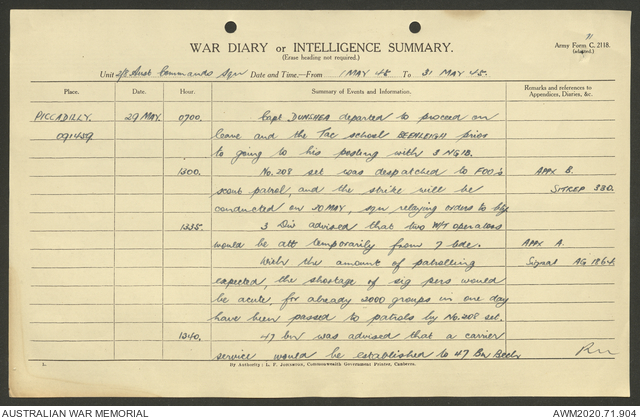 11
WAR DIARY or INTELLIGENCE SUMMARY.
(Erase heading not required.)
Army Form C. 2118.
(adapted.)
Unit 2/8 Aust Commando Sqn Date and Time.—From 1 MAY 45 To 31 MAY 45.
Place. Date. Hour. Summary of Events and Information. Remarks and references to Appendices, Diaries, &c.
PICCADILLY. 29 MAY. 0700. Capt DUNSHEA departed to proceed on
091459 leave and the Tac school BEENLEIGH prior
to going to his posting with 3 NGIB.
1300. No. 208 set was despatched to FOO's APPX B.
scout patrol, and the strike will be SITREP 330.
conducted on 30 MAY, sqn relaying orders to bty.
1335. 3 Div advised that two W/T operators
would be att temporarily from 7 bde. APPX A.
With the amount of patrolling Signal AG 1864.
expected, the shortage of sig pers would
be acute, for already 2000 groups in one day
have been passed to patrols by No. 208 set.
1340. 47 bn was advised that a carrier
service would be established to 47 Bn
L. By Authority: L. F. Johnston, Commonwealth Government Printer, Canberra.
AUSTRALIAN WAR MEMORIAL AWM2020.71.904